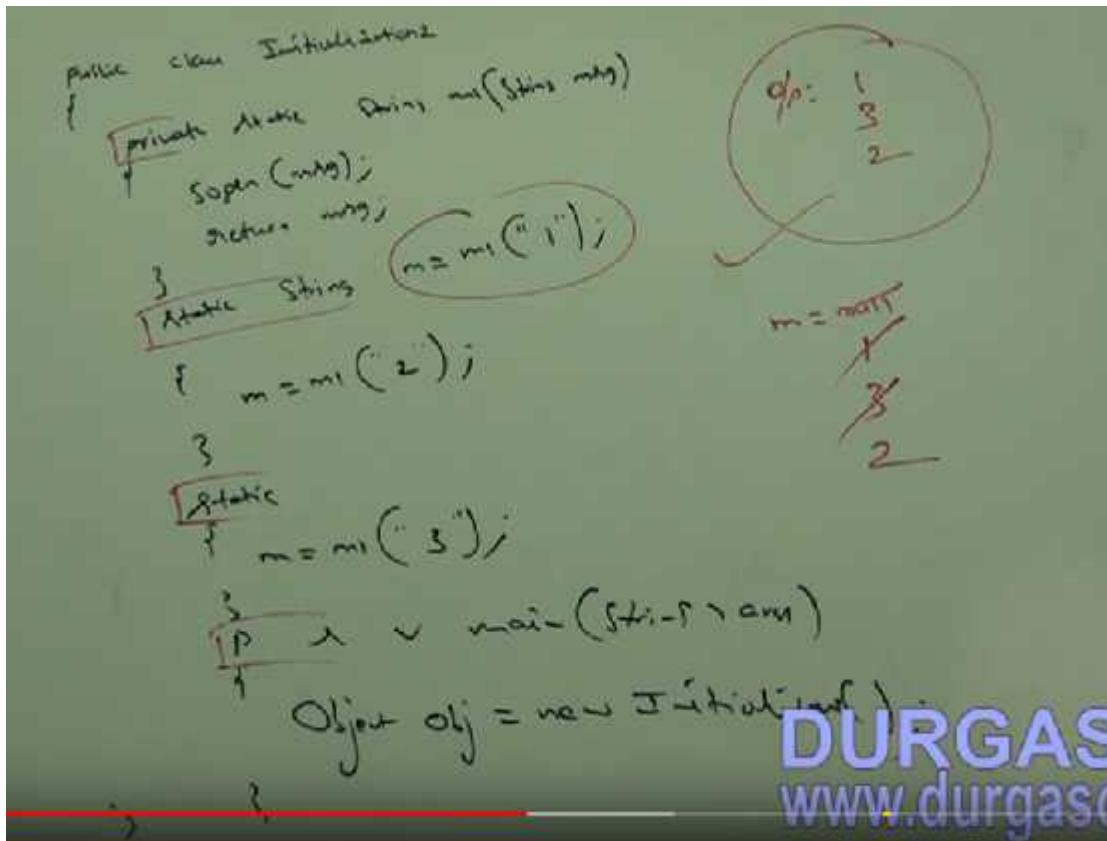 public class Initialization2
{
private static String m1(String msg)
{
Sopln(msg);
return msg;
}
static String m = m1("1");
{
m = m1("2");
}
static
{
m = m1("3");
}
p s v main(String[] args)
{
Object obj = new
}
}
o/p: 1
3
2
m = null
1
3
2
DURGAS
www.durgaso